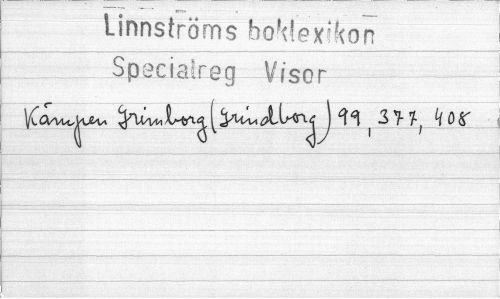 Linnströms boklexikon
Specialreg Visor
Kämpen Grimborg (Grindborg) 99, 377, 408